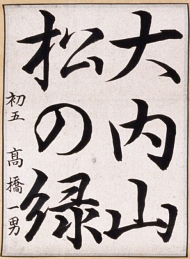 大内山
松の緑
初五 高橋一男